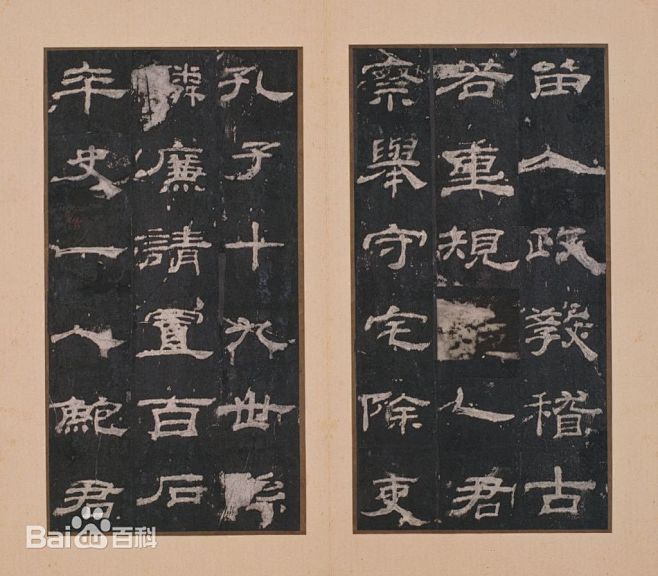 留人政教稽古
若重規乙君
察舉守宅除吏
孔子十九世孫
麟廉請置百石
卒史一人鮑君
Bai百科